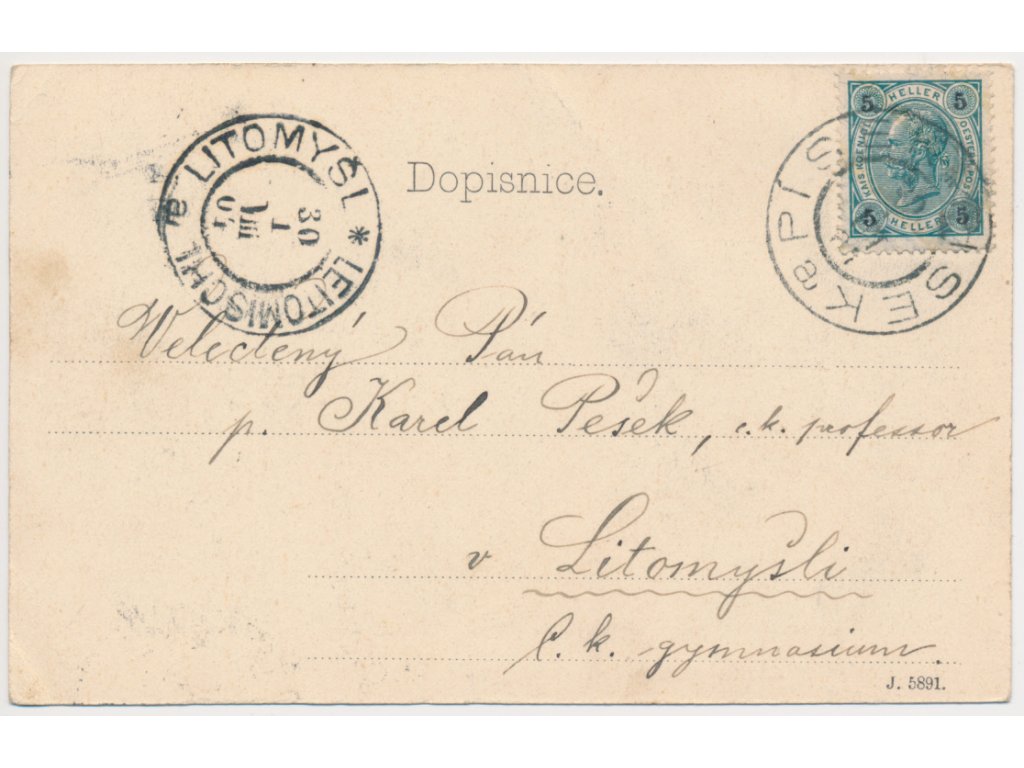 Dopisnice.
5 HELLER 5
KAIS. KOENIGL. OESTERR. POST
5 HELLER 5
PÍSEK PISEK e
LITOMYŠL * LEITOMISCHL e
30
1
VIII
Veledený Pán
p. Karel Pešek, c.k. professor
v Litomyšli
C. k. gymnasium.
J. 5891.